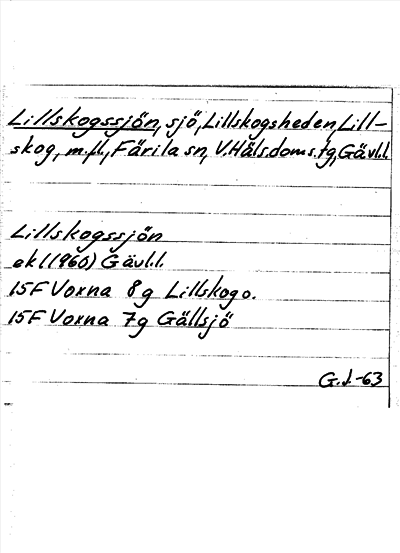 Lillskogssjön, sjö, Lillskogsheden, Lill-
skog, m.fl., Färila sn, V.Häls.doms.tg, Gävl.l.
Lillskogssjön
ek (1960) Gävl.l.
15F Voxna 8g Lillskogo.
15F Voxna 7g Gällsjö
G.J.-63